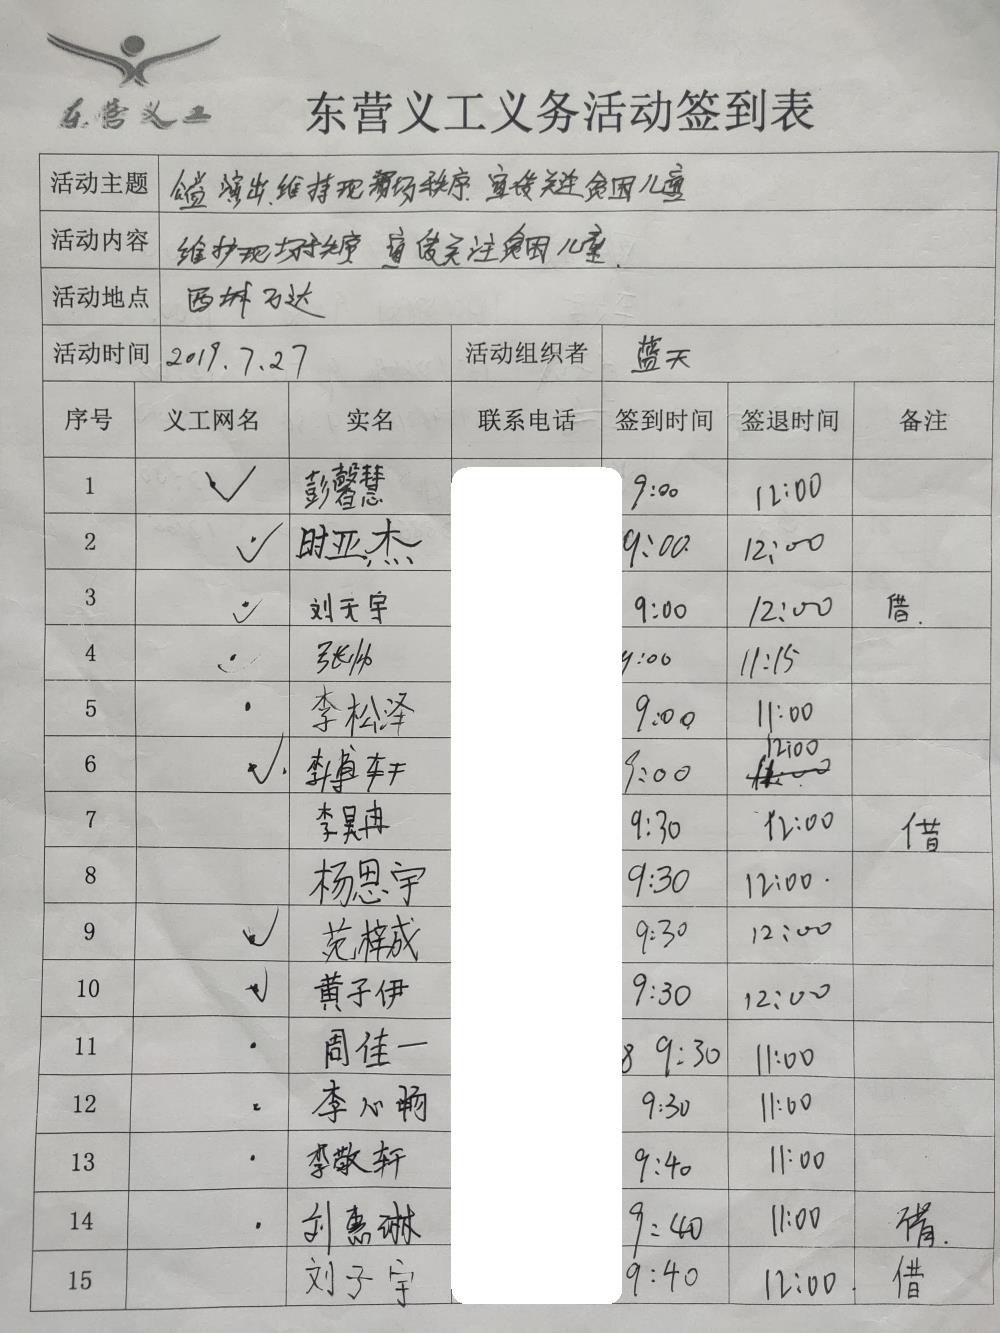 东营义工
东营义工义务活动签到表
活动主题 演出,维持现场秩序.宣传关注贫困儿童
活动内容 维护现场秩序 宣传关注贫困儿童.
活动地点 西城万达
活动时间 2019.7.27 活动组织者 蓝天
序号 义工网名 实名 联系电话 签到时间 签退时间 备注
1 ✓ 彭馨慧 9:00 12:00
2 ✓ 时亚杰 9:00 12:00
3 ✓ 刘天宇 9:00 12:00 借.
4 ✓ 张帅 9:00 11:15
5 李松泽 9:00 11:00
6 ✓ 李卓轩 9:00 12:00
7 李昊冉 9:30 12:00 借
8 杨恩宇 9:30 12:00
9 ✓ 范梓成 9:30 12:00
10 ✓ 黄子伊 9:30 12:00
11 周佳一 8 9:30 11:00
12 李心畅 9:30 11:00
13 李敬轩 9:40 11:00
14 刘惠琳 9:40 11:00 借.
15 刘子宇 9:40 12:00 借